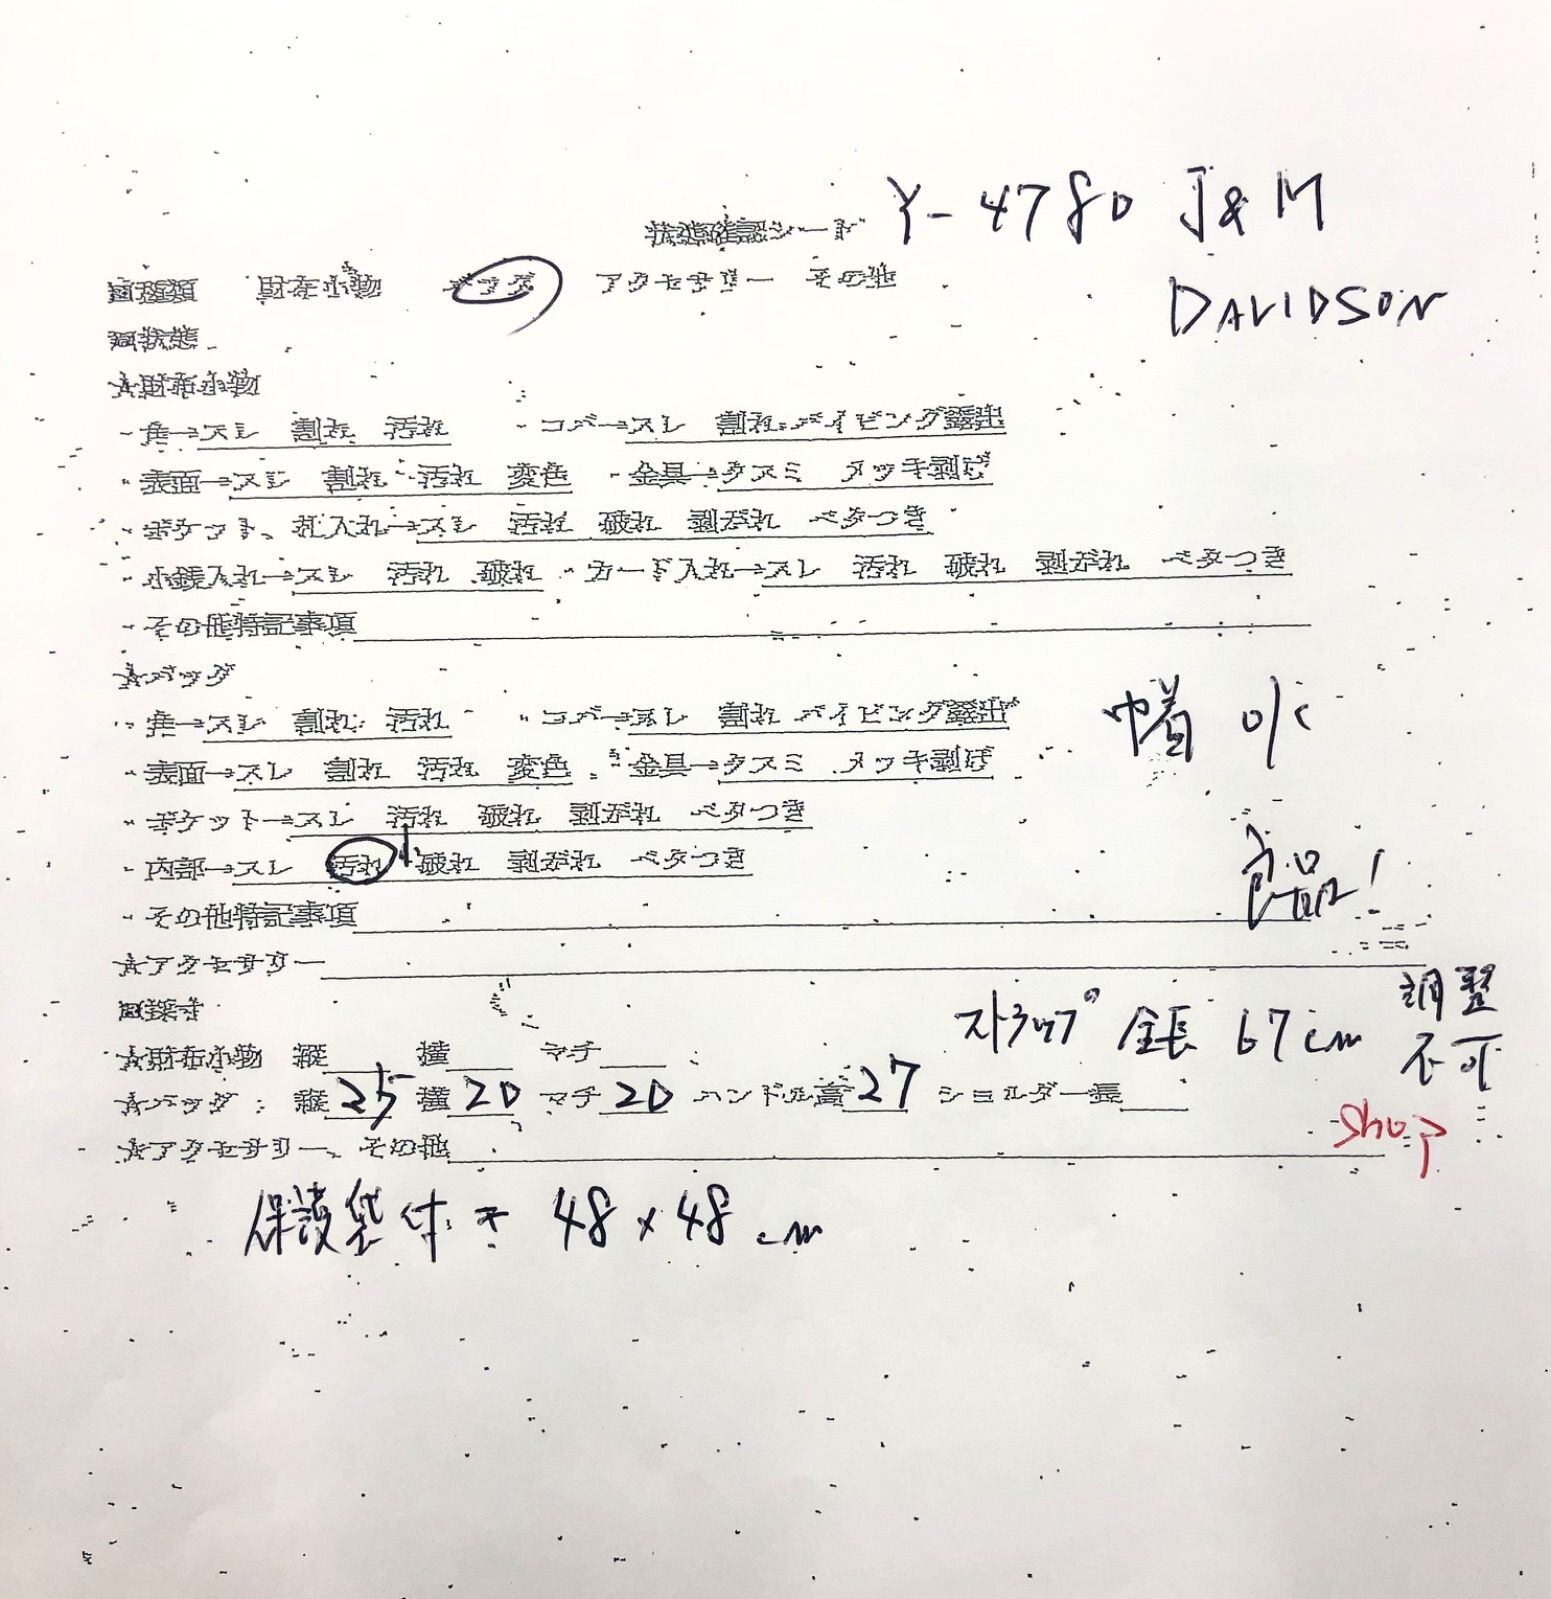 状態確認シート Y-4780 J&M
DAVIDSON
□種類 財布小物 バッグ アクセサリー その他
□状態
☆財布小物
・角→スレ 割れ 汚れ ・コバ→スレ 割れ パイピング露出
・表面→スレ 割れ 汚れ 変色 ・金具→クスミ メッキ剥げ
・ポケット、札入れ→スレ 汚れ 破れ 剥がれ ベタつき
・小銭入れ→スレ 汚れ 破れ ・カード入れ→スレ 汚れ 破れ 剥がれ ベタつき
・その他特記事項
☆バッグ
・角→スレ 割れ 汚れ ・コバ→スレ 割れ パイピング露出
巾着
・表面→スレ 割れ 汚れ 変色 ・金具→クスミ メッキ剥げ
・ポケット→スレ 汚れ 破れ 剥がれ ベタつき
・内部→スレ 汚れ 小 破れ 剥がれ ベタつき
良品!
・その他特記事項
☆アクセサリー
□採寸
ストラップの全長 67cm 調整不可
☆財布小物 縦 横 マチ
☆バッグ: 縦25 横20 マチ20 ハンドル高27 ショルダー長
shop
☆アクセサリー、その他
保護袋付き 48×48cm